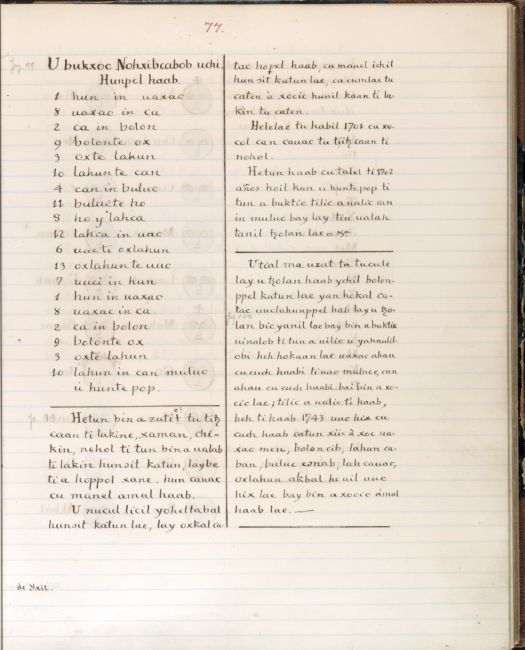 77.
U bukxoc Nohxibcabob uchi
Hunpel haab.
1 hun in uaxac
8 uaxac in ca
2 ca in bolon
9 bolonte ox
3 oxte lahun
10 lahunte can
4 can in buluc
11 bulucte ho
5 ho y lahca
12 lahca in uac
6 uacte oxlahun
13 oxlahunte uuc
7 uuci in hun
1 hun in uaxac
8 uaxac in ca
2 ca in bolon
9 bolonte ox
3 oxte lahun
10 lahun in can muluc
u hunte pop.
Hetun bin a zutić tu titz
caan ti lakine, xaman, chi-
kin, nohol ti tun bin a ualab
ti lakin hunzit katun, laybe
ti a hoppol xane. hun cauac
cu manel amal haab.
U nucul licil yoheltabal
hunzit katun lae, lay oxkal ca-
de Yxil.
tac hopel haab, ca manel ichil
hunzit katun lae, ca cumlac tu
caten a xocic hunil kaan ti la-
kin tu caten.
Helelae tu habil 1701 cu xo-
col can cauac tu tiitz caan ti
nohol.
Hetun haab cu talel ti 1702
años hoil kan u hunte pop ti
tun a buktic tilic a ualic can
in muluc bay lay tin ualah
tanil tzolan lae
Utial ma uzut ta tucule
lay u tzolan haab yohil bolon-
ppel katun lae yan hokal ca-
tac uuclahunppel hab lay u tzo-
lan bic yanil lae bay bin a buktic
uinalob ti tun a uilic u yahauli-
obi heh hokaan lae uaxac ahau
cu cuch haabi ti uac muluce, can
ahau cu cuch haabi. bai bin a xo-
cic lae; tilic a ualic ti haab,
heh ti haab. 1743 uuc hix cu
cuch haab catun xiic a xoc ua-
xac men, bolon cib, lahun ca-
ban, buluc eznab, lah cauac,
oxlahun akbal he uil uuc
hix lae bay bin a xocic amal
haab lae.